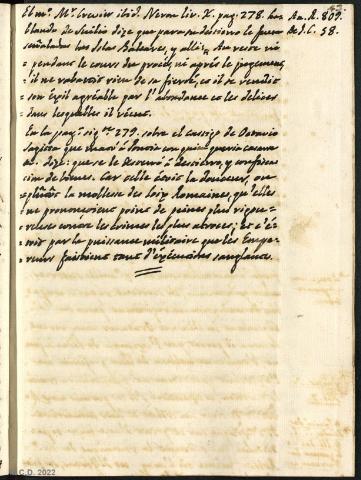 El mº. Mr. Crevier ibid. Neron liv. X. pag. 278. hablando
An. R. 809.
De J. C. 58.
de Suilio dize que para su destierro le fueron
señaladas las Islas Baleares, y alli: Au reste ni
pendant le cours du procès, ni après le jugement,
il ne rabattit rien de sa fierté, et il se rendit
son éxil agréable par l'abondance et les délices
dans lesquelles il vécut.
En la pagª. sigte. 279. sobre el castigo de Octavio
Sagitta que mató à Poncia con quien queria casarse
dize: que se le desterró à destierro, y confiscacion
de bienes. Car telle étoit la douceur, ou
plutôt la mollesse des Loix Romaines, qu'elles
ne prononçoient point de peines plus rigoureuses
contre les crimes les plus atroces; Et c'étoit
par la puissance militaire que les Empereurs
faisoient tant d'exécutions sanglantes.
C.D. 2022